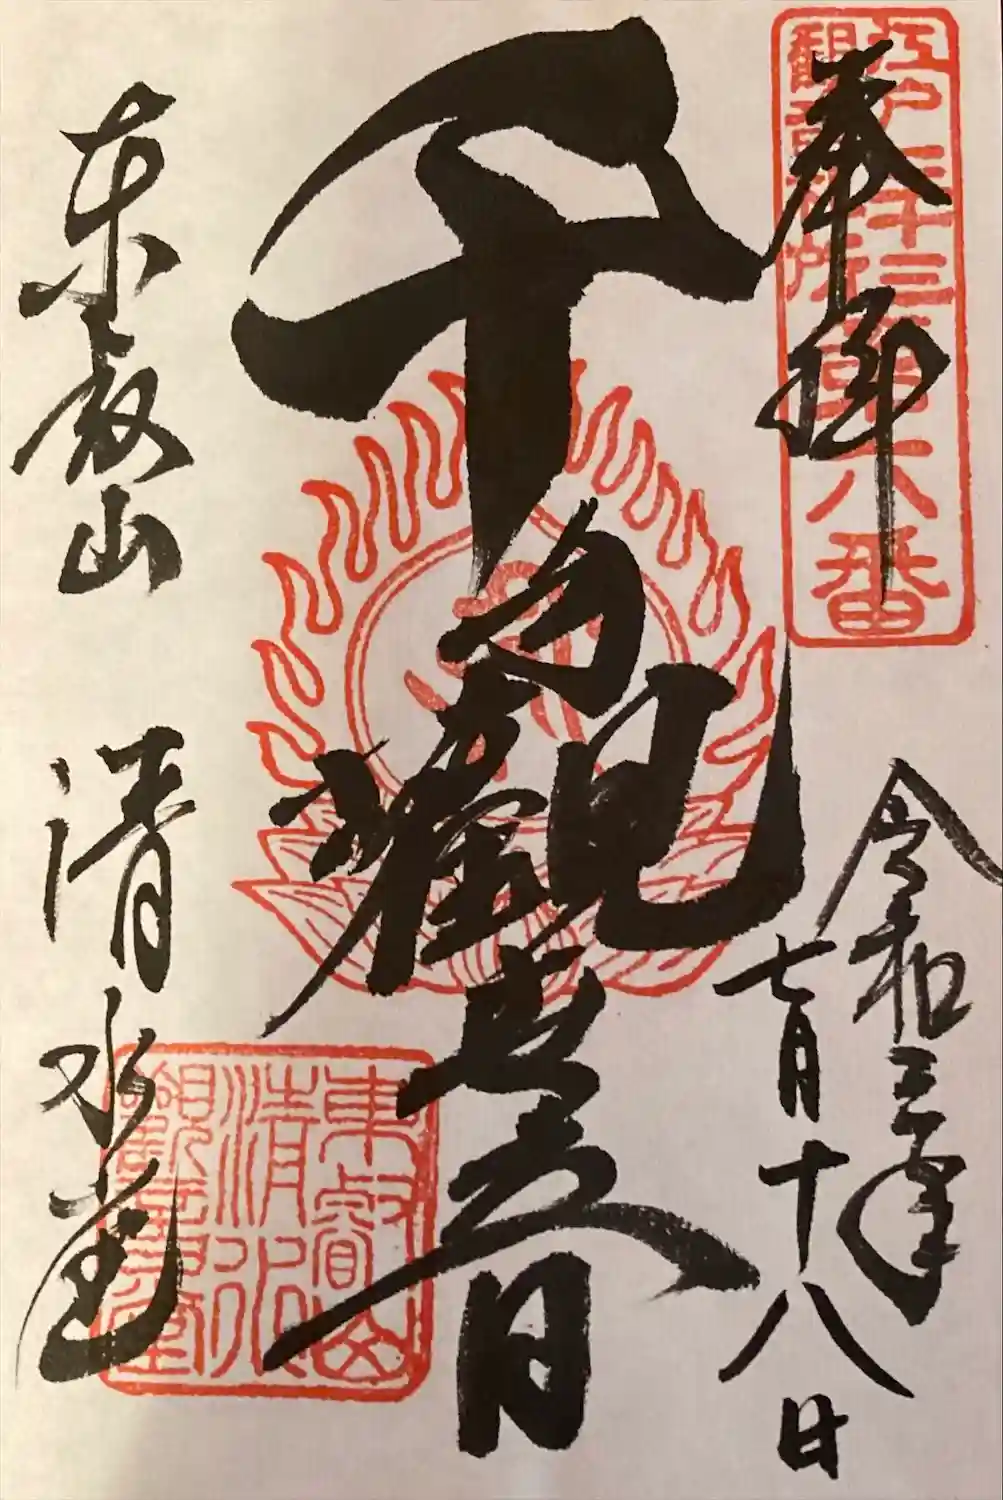 奉拝
江戸三十三
観音札所
第六番
令和三年
七月十八日
千手觀世音
東叡山 清水堂
東叡山
清水
觀音堂